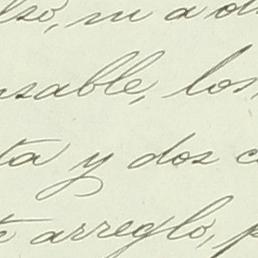 lso, ni a d
nsable, los
ta y dos c
te arreglo, p